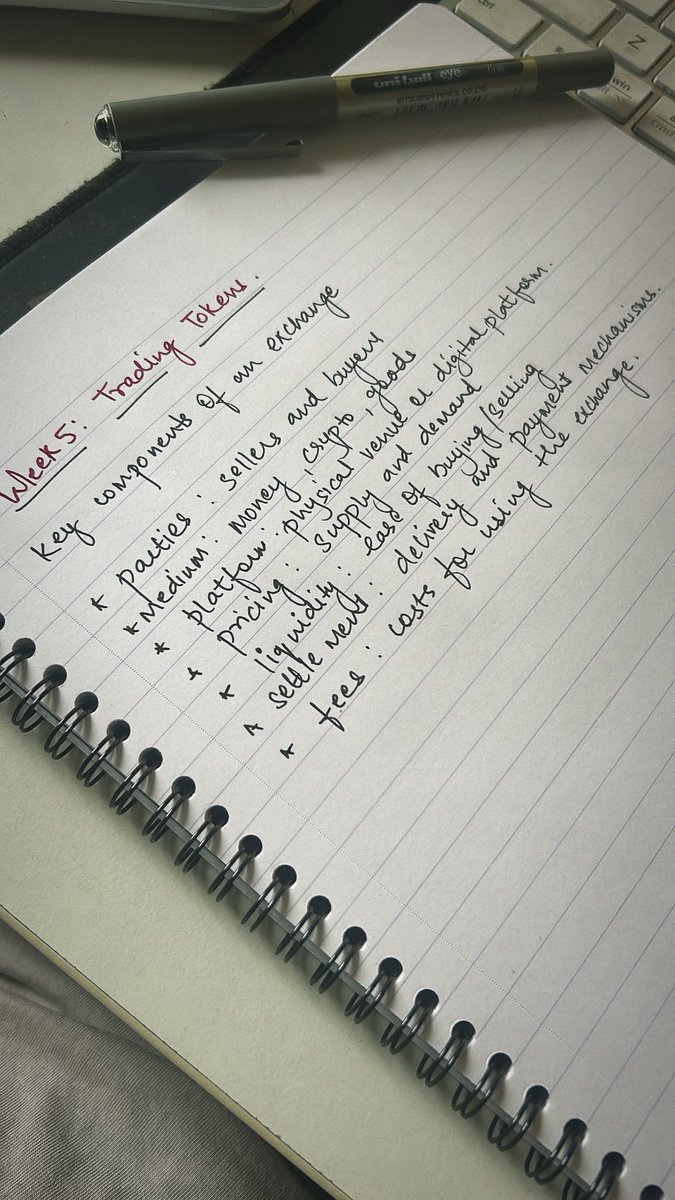 uni-ball eye fine
MITSUBISHI PENCIL CO.LTD.
Z
win
cmd
Week 5: Trading Tokens.
Key components of an exchange
* Parties: sellers and buyers
* Medium: money, crypto, goods
* platform: physical venue or digital platform.
* pricing: supply and demand
* liquidity: ease of buying/selling
* settlement: delivery and payment mechanisms.
* fees: costs for using the exchange.